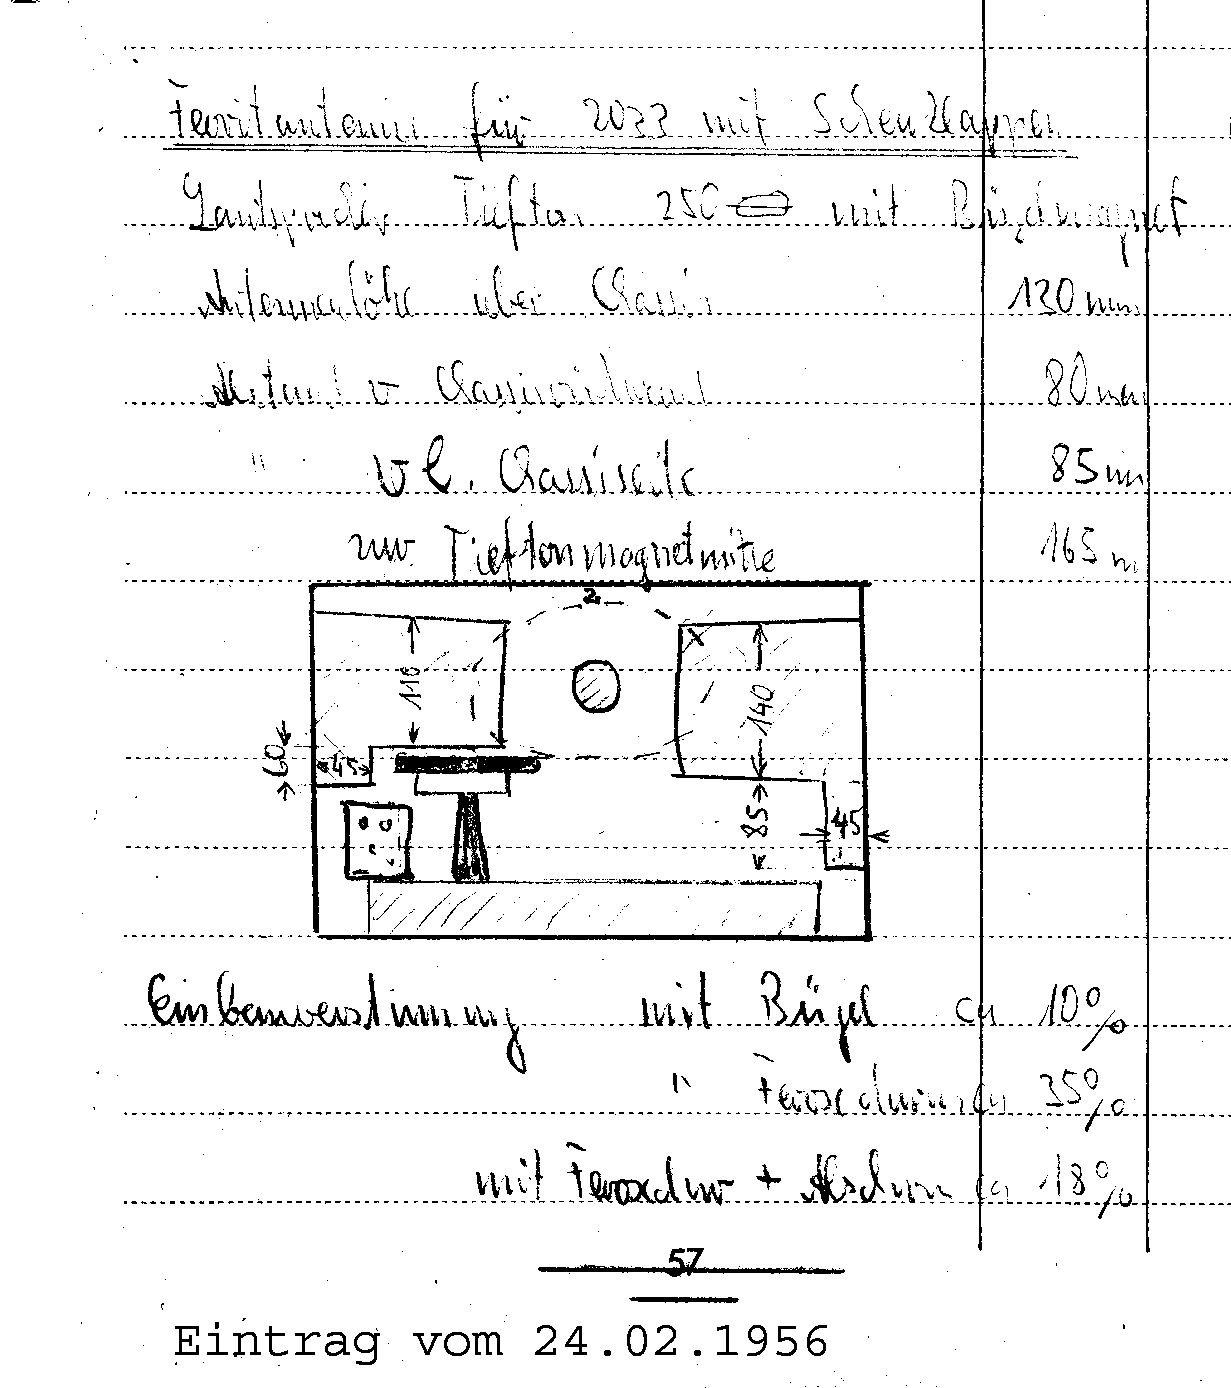 Ferritantenne für 2033 mit
Lautsprecher Tiefton 250 mit Bügelmagnet
Antennenhöhe über Chassis 130 mm
Abstand v Chassisvorderwand 80 mm
" v l. Chassisseite 85 mm
zur Tieftonmagnetmitte 165 m
2
110
140
60
45
85
45
Einbauverstimmung mit Bügel ca 10%
" ca 35%
mit + ca 18%
57
Eintrag vom 24.02.1956